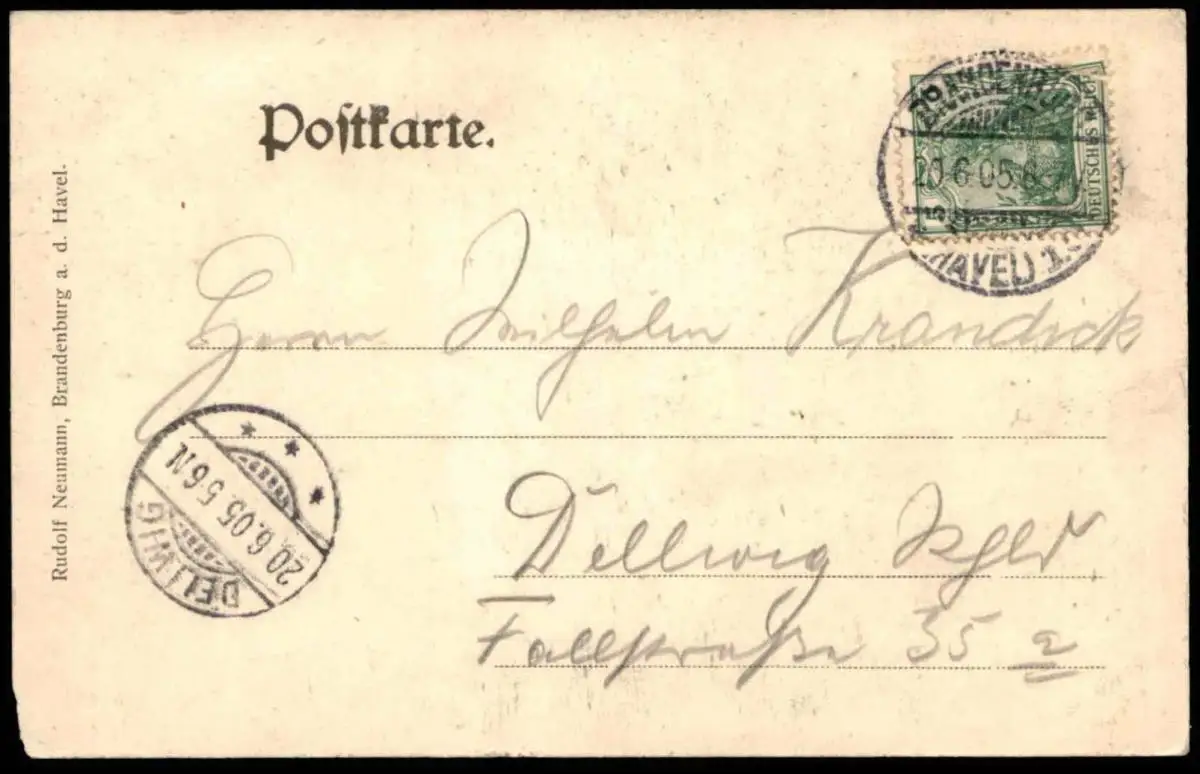 Postkarte.
BRANDENBURG
20.6.05.8-
(HAVEL) 1.
DEUTSCHES REICH
Herrn Wilhelm Krandick
20.6.05.5-6N
DELLWIG
Dellwig Rhld
Fallstraße 35 a
Rudolf Neumann, Brandenburg a. d. Havel.